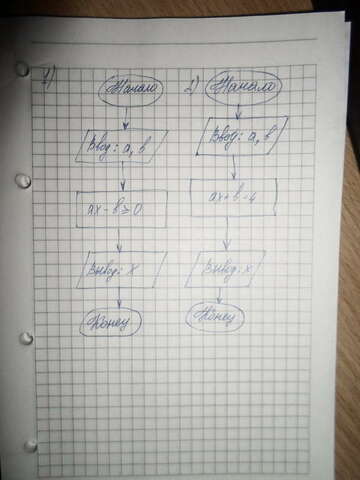 1)
Начало
Ввод: a, b
ax - b ≥ 0
Вывод: x
Конец
2)
Начало
Ввод: a, b
ax + b - 4
Вывод: x
Конец